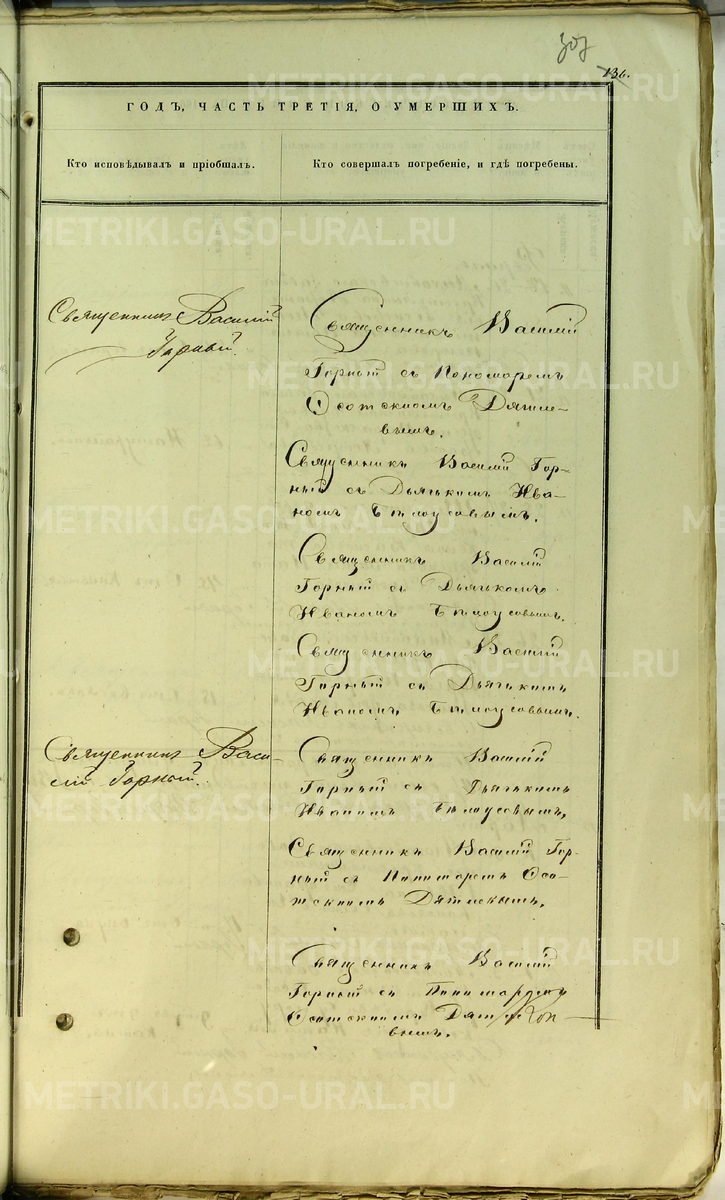 307
136.
ГОДЪ, ЧАСТЬ ТРЕТІЯ, О УМЕРШИХЪ.
Кто исповѣдывалъ и пріобщалъ.
Кто совершалъ погребеніе, и гдѣ погребены.
Священникъ Василій
Горный.
Священникъ Василій
Горный съ Пономаремъ
Дятле-
вымъ.
Священникъ Василій Гор-
ный съ Дьячкомъ Ива-
номъ Бѣлоусовымъ.
Священникъ Василій
Горный съ Дьячкомъ
Иваномъ Бѣлоусовымъ.
Священникъ Василій
Горный съ Дьячкомъ
Иваномъ Бѣлоусовымъ.
Священникъ Васи-
лій Горный.
Священникъ Василій
Горный съ Дьячкомъ
Иваномъ Бѣлоусовымъ.
Священникъ Василій Гор-
ный съ Пономаремъ
Дятлевымъ.
Священникъ Василій
Горный съ Пономаремъ
Дятле-
вымъ.
METRIKI.GASO-URAL.RU